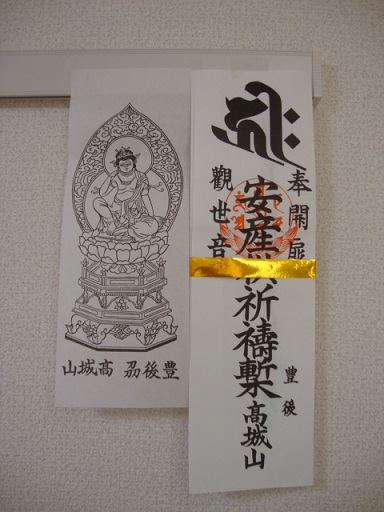 奉開扉
豊後
安産祈禱槧
髙城山
觀世音
豊後刕高城山